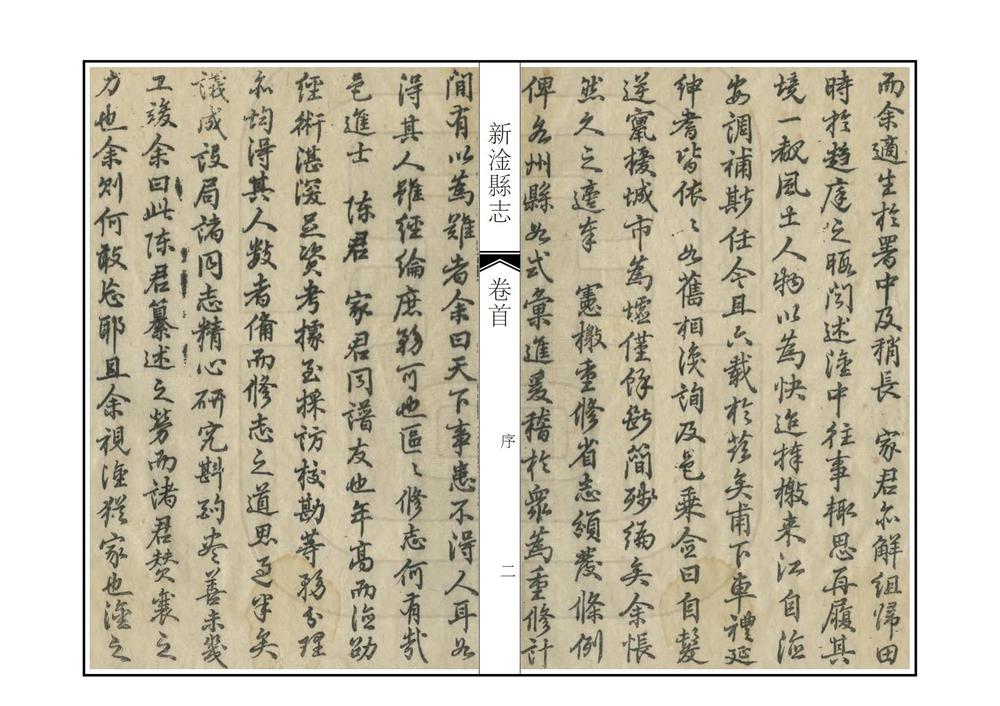 而余適生於署中及稍長　家君亦解組歸田
時於趨庭之暇間述淦中往事輒思再履其
境一覩風土人物以為快迨捧檄來江自涖
安調補斯任今且六載於茲矣甫下車禮延
紳耆皆依〻如舊相浹詢及邑乘僉曰自髮
逆竄擾城市為墟僅餘斷簡殘編矣余悵
然久之適奉　憲檄重修省志頒發條例
俾各州縣如式彙進爰稽於眾為重修計
新淦縣志
卷首
序
二
間有以為難者余曰天下事患不得人耳如
得其人雖經綸庶務可也區〻修志何有哉
邑進士　陳君　家君同譜友也年高而德劭
經術湛深並資考據至採訪校勘等務分理
亦均得其人數者備而修志之道思過半矣
議成設局諸同志精心研究斟酌盡善未幾
工竣余曰此陳君纂述之勞而諸君贊襄之
力也余則何敢忘耶且余視淦猶家也淦之